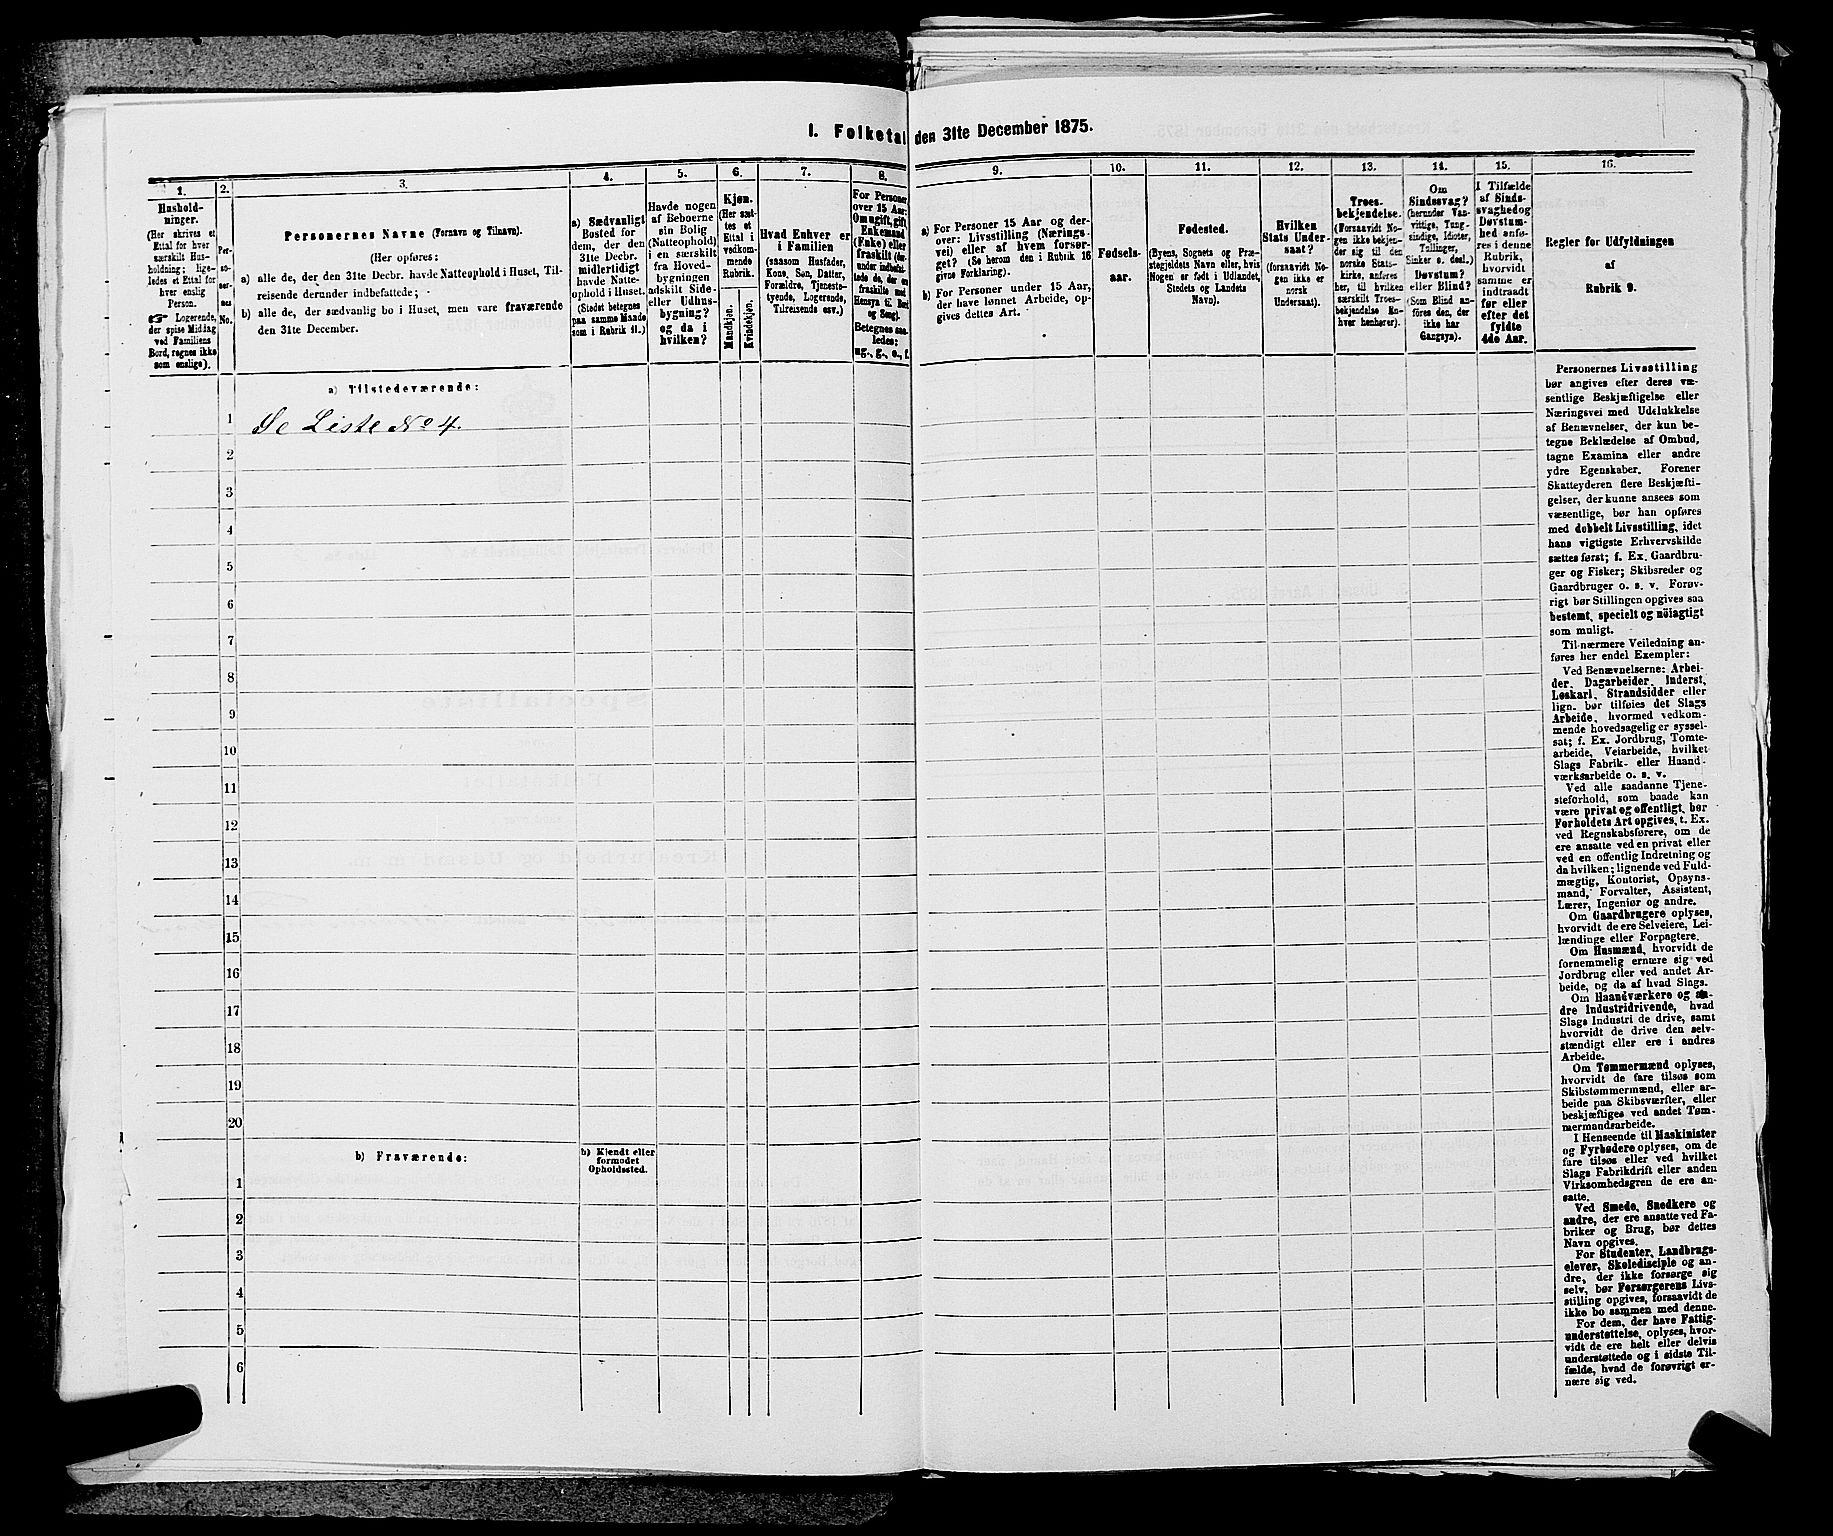 I. Folketal den 31te December 1875.
1.
Hushold-
ninger.
(Her skrives et
Ettal for hver
særskilt Hus-
holdning; lige-
ledes et Ettal for
hver enslig
Person.
☞ Logerende,
der spise Middag
ved Familiens
Bord, regnes ikke
som enslige).
2.
Per-
so-
ner-
nes
No.
3.
Personernes Navne (Fornavn og Tilnavn).
(Her opføres:
a) alle de, der den 31te Decbr. havde Natteophold i Huset, Til-
reisende derunder indbefattede;
b) alle de, der sædvanlig bo i Huset, men vare fraværende
den 31te December.
4.
a) Sædvanligt
Bosted for
dem, der den
31te Decbr.
midlertidigt
havde Natte-
ophold i Huset.
(Stedet betegnes
paa samme Maade
som i Rubrik 11.)
5.
Havde nogen
af Beboerne
sin Bolig
(Natteophold)
i en særskilt
fra Hoved-
bygningen
adskilt Side-
eller Udhus-
bygning?
og da i
hvilken?
6.
Kjøn.
(Her sæt-
tes et
Ettal i
vedkom-
mende
Rubrik.
Mandkjøn.
Kvindekjøn.
7.
Hvad Enhver er
i Familien
(saasom Husfader,
Kone, Søn, Datter,
Forældre, Tjeneste-
tyende, Logerende,
Tilreisende osv.)
8.
For Personer
over 15 Aar:
Om ugift, gift,
Enkemand
(Enke) eller
fraskilt (der-
under indbefat-
tede de, der ere
fraskilte med
Hensyn til Bord
og Seng).
Betegnes saa-
ledes:
ug., g., e., f.
9.
a) For Personer 15 Aar og der-
over: Livsstilling (Nærings-
vei) eller af hvem forsør-
get? (Se herom den i Rubrik 16
givne Forklaring).
b) For Personer under 15 Aar,
der have lønnet Arbeide, op-
gives dettes Art.
10.
Fødsels-
aar.
11.
Fødested.
(Byens, Sognets og Præ-
stegjeldets Navn eller, hvis
Nogen er født i Udlandet,
Stedets og Landets
Navn).
12.
Hvilken
Stats Under-
saat?
(forsaavidt No-
gen ikke er
norsk
Undersaat).
13.
Troes-
bekjendelse.
(Forsaavidt No-
gen ikke bekjen-
der sig til den
norske Stats-
kirke, anføres
her, til hvilken
særskilt Troes-
bekjendelse En-
hver henhører).
14.
Om
Sindssvag?
(herunder Van-
vittige, Tung-
sindige, Idioter,
Tullinger,
Sinker o. desl.)
Døvstum?
eller Blind?
(Som Blind an-
føres den, der
ikke har
Gangsyn).
15.
I Tilfælde
af Sinds-
svaghed og
Døvstum-
hed anfø-
res i denne
Rubrik,
hvorvidt
samme er
indtraadt
før eller
efter det
fyldte
4de Aar.
16.
Regler for Udfyldningen
af
Rubrik 9.
Personernes Livsstilling
bør angives efter deres væ-
sentlige Beskjæftigelse eller
Næringsvei med Udelukkelse
af Benævnelser, der kun be-
tegne Beklædelse af Ombud,
tagne Examina eller andre
ydre Egenskaber. Forener
Skatteyderen flere Beskjæfti-
gelser, der kunne ansees som
væsentlige, bør han opføres
med dobbelt Livsstilling, idet
hans vigtigste Erhvervskilde
sættes først; f. Ex. Gaardbru-
ger og Fisker; Skibsreder og
Gaardbruger o. s. v. Forøv-
rigt bør Stillingen opgives saa
bestemt, specielt og nöiagtigt
som muligt.
Til nærmere Veiledning an-
føres her endel Exempler:
Ved Benævnelserne: Arbei-
der, Dagarbeider, Inderst,
Løskarl, Strandsidder eller
lign. bør tilføies det Slags
Arbeide, hvormed vedkom-
mende hovedsagelig er syssel-
sat; f. Ex. Jordbrug, Tomte-
arbeide, Veiarbeide, hvilket
Slags Fabrik- eller Haand-
værksarbeide o. s. v.
Ved alle saadanne Tjene-
steforhold, som baade kan
være privat og offentligt, bør
Forholdets Art opgives, t. Ex.
ved Regnskabsførere, om de
ere ansatte ved en privat eller
ved en offentlig Indretning og
da hvilken; lignende ved Fuld-
mægtig, Kontorist, Opsyns-
mand, Forvalter, Assistent,
Lærer, Ingeniør og andre.
Om Gaardbrugere oplyses,
hvorvidt de ere Selveiere, Lei-
lændinge eller Forpagtere.
Om Husmænd, hvorvidt de
fornemmelig ernære sig ved
Jordbrug eller ved andet Ar-
beide, og da af hvad Slags.
Om Haandværkere og an-
dre Industridrivende, hvad
Slags Industri de drive, samt
hvorvidt de drive den selv-
stændigt eller ere i andres
Arbeide.
Om Tømmermænd oplyses,
hvorvidt de fare tilsøs som
Skibstømmermænd, eller ar-
beide paa Skibsværfter, eller
beskjæftiges ved andet Tøm-
mermandsarbeide.
I Henseende til Maskinister
og Fyrbødere oplyses, om de
fare tilsøs eller ved hvilket
Slags Fabrikdrift eller anden
Virksomhedsgren de ere an-
satte.
Ved Smede, Snedkere og
andre, der ere ansatte ved Fa-
briker og Brug, bør dettes
Navn opgives.
For Studenter, Landbrugs-
elever, Skoledisciple og an-
dre, der ikke forsørge sig
selv, bør Forsørgerens Livs-
stilling opgives, forsaavidt de
ikke bo sammen med denne.
For dem, der have Fattig-
understøttelse, oplyses, hvor-
vidt de ere helt eller delvis
understøttede og i sidste Til-
fælde, hvad de forøvrigt er-
nære sig ved.
a) Tilstedeværende:
1 Se Liste No 4.
2
3
4
5
6
7
8
9
10
11
12
13
14
15
16
17
18
19
20
b) Fraværende:
b) Kjendt eller
formodet
Opholdssted.
1
2
3
4
5
6